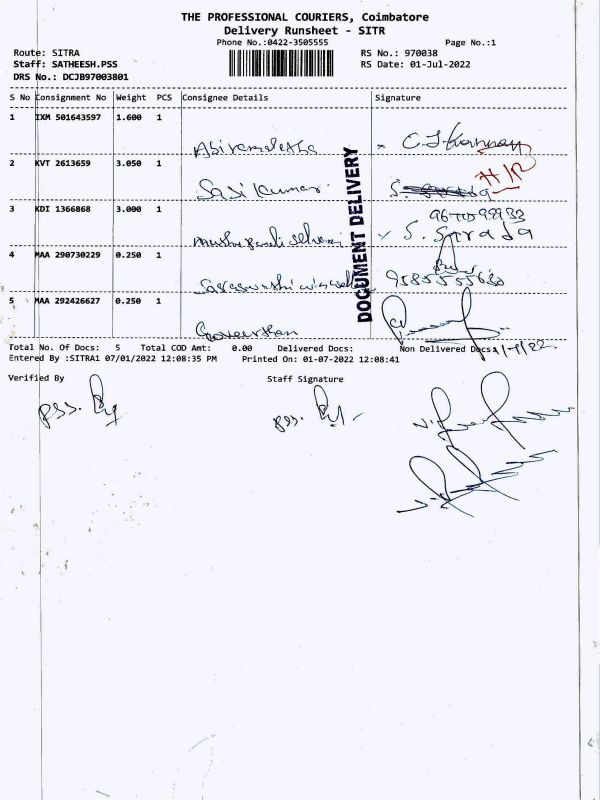 THE PROFESSIONAL COURIERS, Coimbatore
Delivery Runsheet - SITR
Phone No.:0422-3505555
Page No.:1
Route: SITRA
RS No.: 970038
Staff: SATHEESH.PSS
RS Date: 01-Jul-2022
DRS No.: DCJB97003801
S No Consignment No Weight PCS Consignee Details Signature
1 IXM 501643597 1.600 1
2 KVT 2613659 3.050 1
Sasi Kumar
3 KDI 1366868 3.000 1
S. Sarada
4 MAA 290730229 0.250 1
9585555630
5 MAA 292426627 0.250 1
DOCUMENT DELIVERY
Total No. Of Docs: 5 Total COD Amt: 0.00 Delivered Docs: Non Delivered Docs:
Entered By :SITRA1 07/01/2022 12:08:35 PM Printed On: 01-07-2022 12:08:41
Verified By Staff Signature
PSS. PSS.